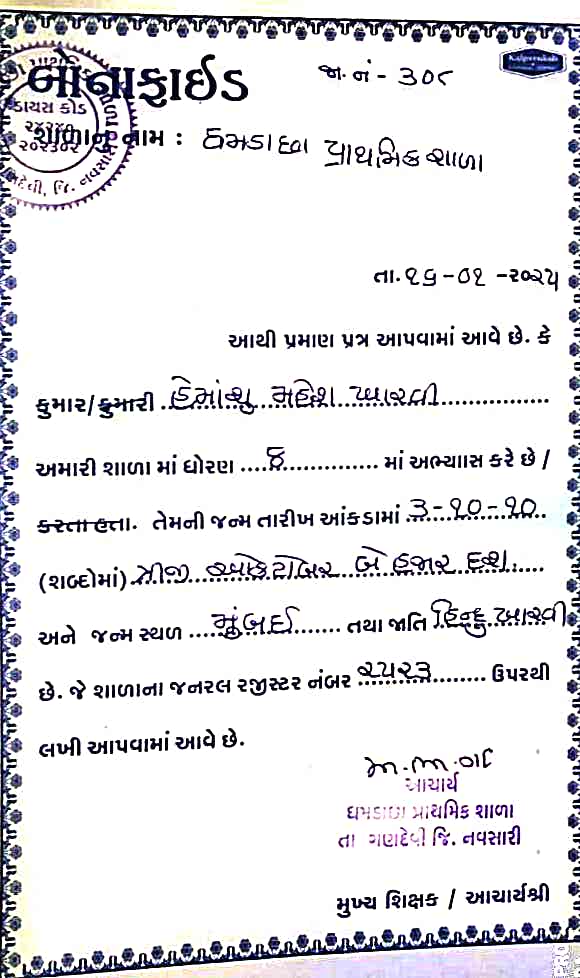 બોનાફાઈડ
જા. નં - ૩૦૮
શાળાનું નામ : ધમડાછા પ્રાથમિક શાળા
ડાયસ કોડ
તા. ૧૬-૦૧-૨૦૨૫
આથી પ્રમાણ પત્ર આપવામાં આવે છે. કે
કુમાર/કુમારી હિમાંશુ મહેશ ખારવી
અમારી શાળા માં ધોરણ ....૪............... માં અભ્યાસ કરે છે /
કરતા હતા. તેમની જન્મ તારીખ આંકડામાં ૩-૧૦-૧૦
(શબ્દોમાં) ત્રીજી ઓક્ટોબર બે હજાર દશ
અને જન્મ સ્થળ મુંબઈ તથા જાતિ હિન્દુ ખારવી
છે. જે શાળાના જનરલ રજીસ્ટર નંબર ૨૫૨૩ ઉપરથી
લખી આપવામાં આવે છે.
આચાર્ય
ધમડાછા પ્રાથમિક શાળા
તા ગણદેવી જિ. નવસારી
મુખ્ય શિક્ષક / આચાર્યશ્રી